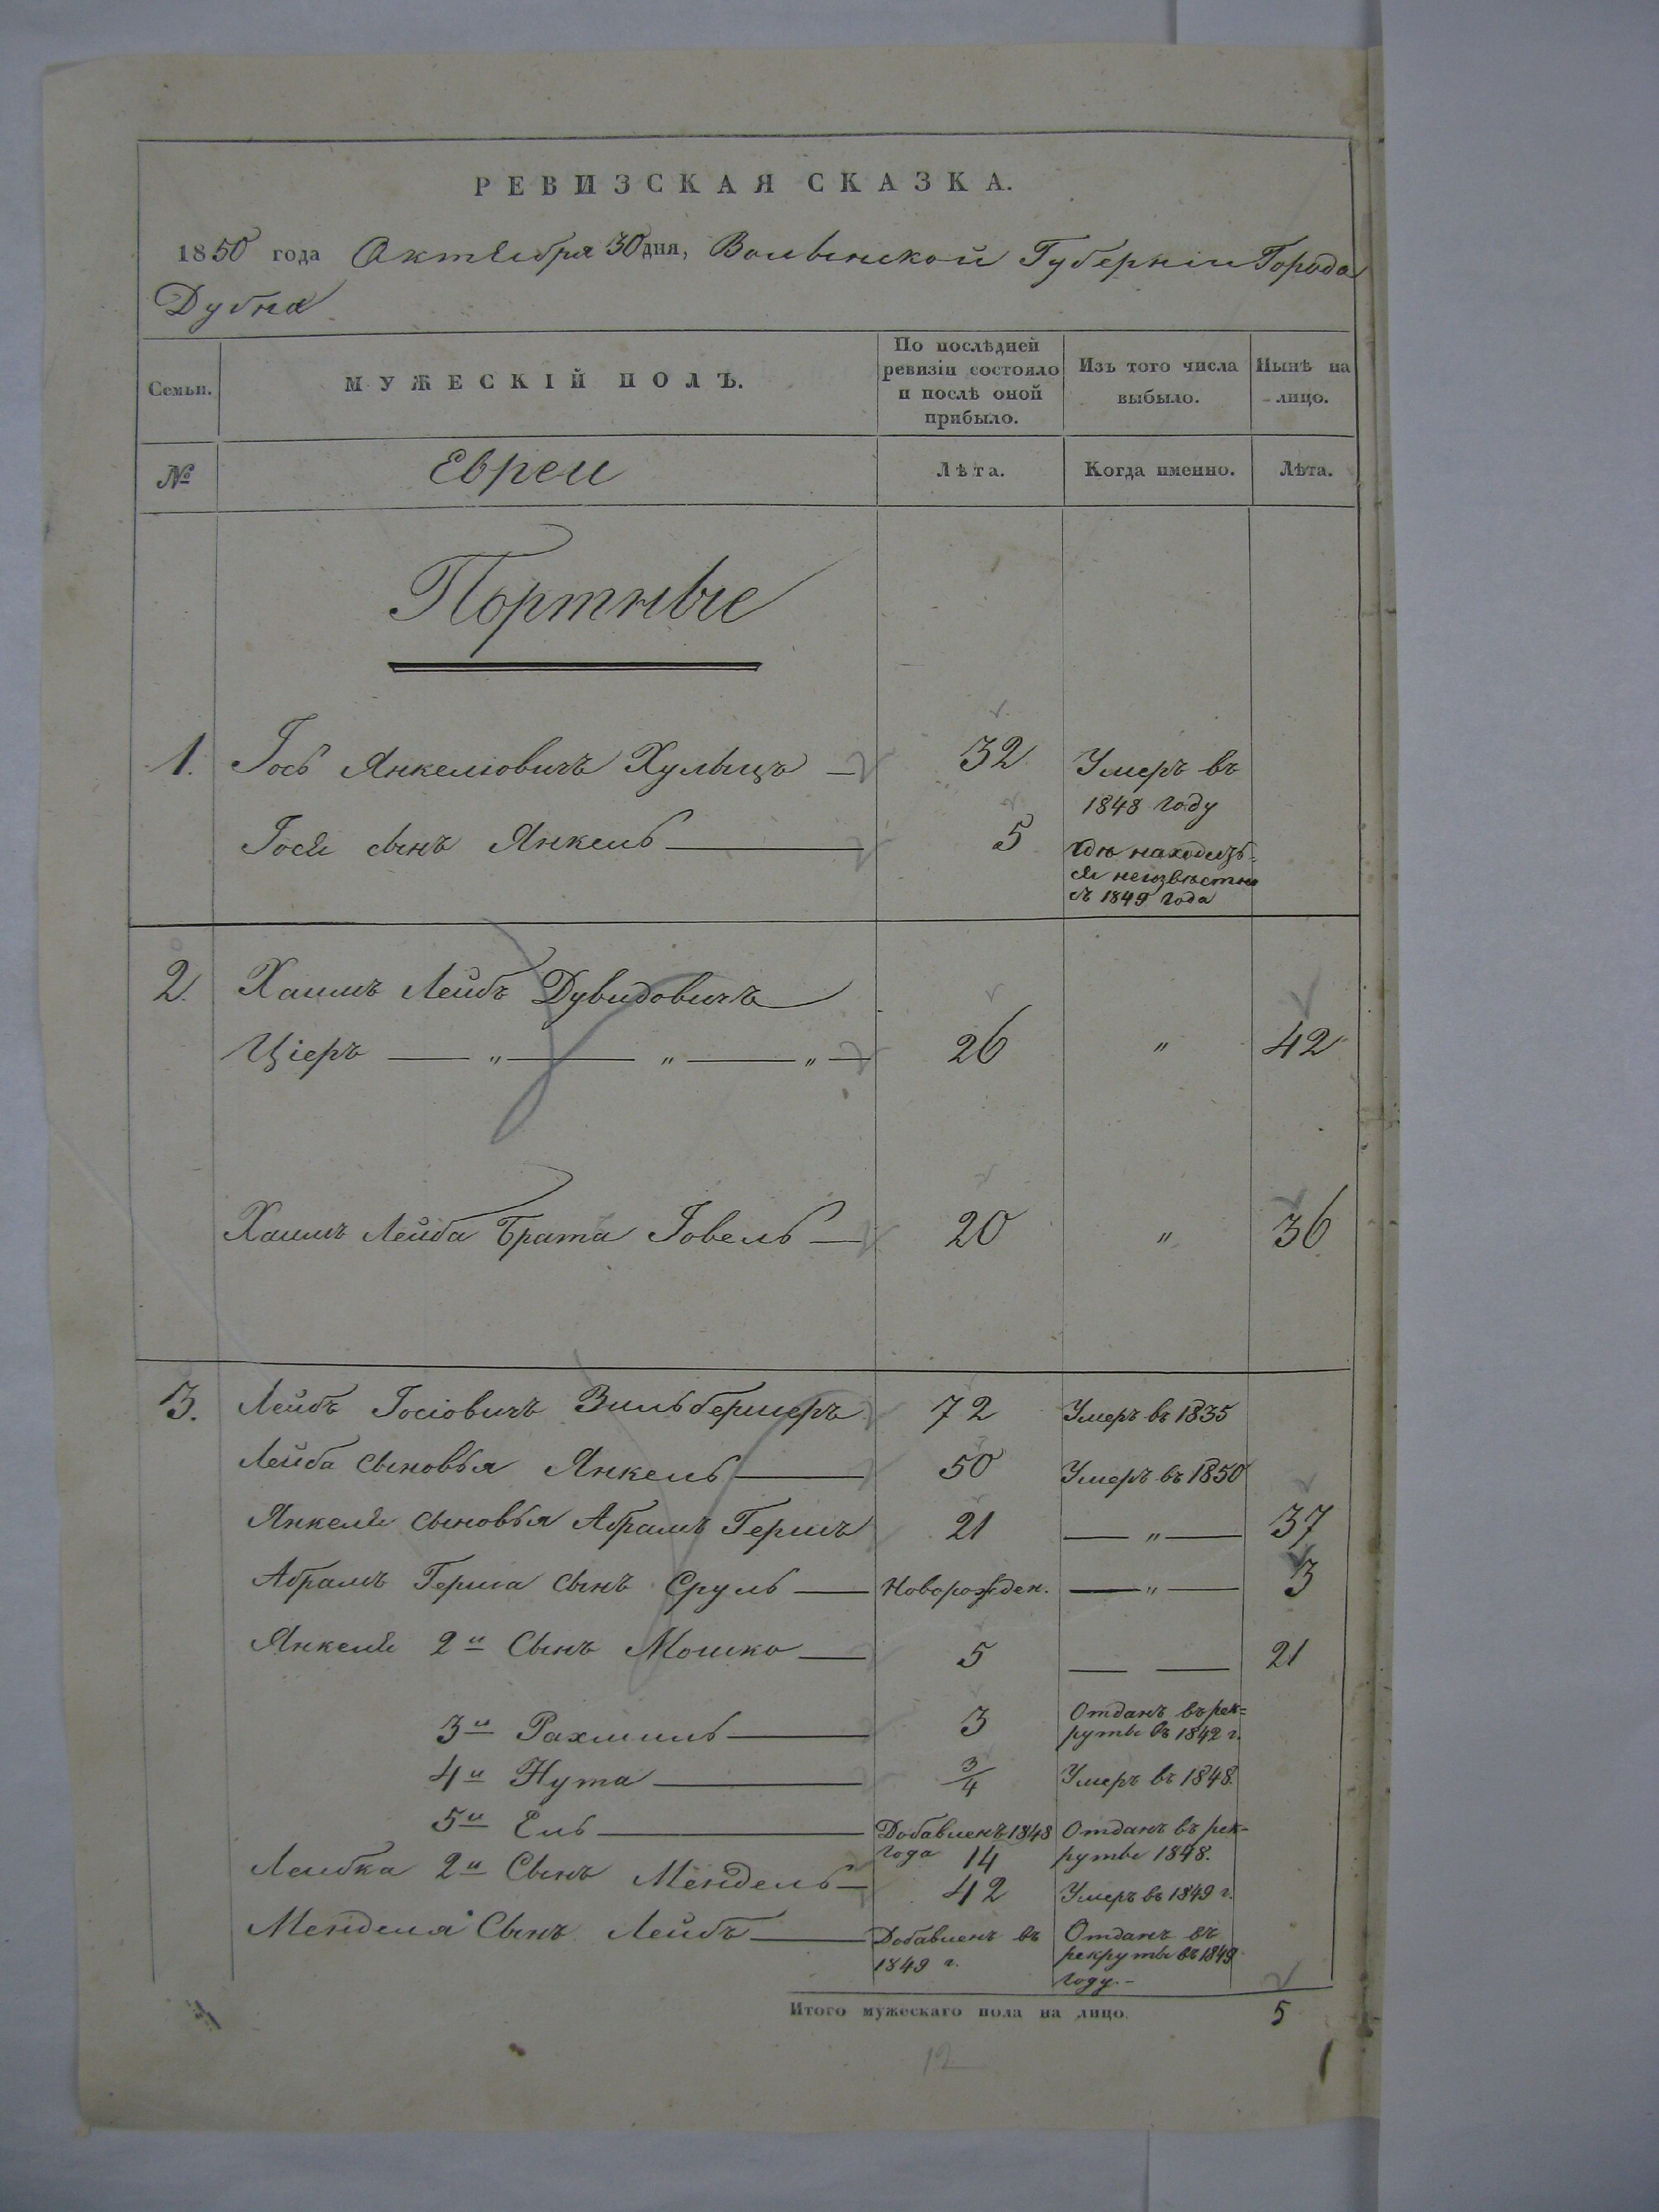 РЕВИЗСКАЯ СКАЗКА.
1850 года Октября 30 дня, Волынской Губерніи Города
Дубна
Семьи. МУЖЕСКІЙ ПОЛЪ. По послѣдней ревизіи состояло и послѣ оной прибыло. Изъ того числа выбыло. Нынѣ на лицо.
№ Евреи Лѣта. Когда именно. Лѣта.
Портные
1. Іось Янкеліовичъ 32 Умеръ въ
1848 году
Іося сынъ Янкель 5 гдѣ находить-
ся неизвѣстно
съ 1849 года
2. Хаимъ Лейбъ Дувидовичъ
Ціеръ — „ — „ — „ — 26 „ 42
Хаимъ Лейба брата Іовель — 20 „ 36
3. Лейбъ Іосіовичъ Зильбермеръ 72 Умеръ въ 1835
Лейба сыновья Янкель — 50 Умеръ въ 1850
Янкеля сыновья Абрамъ Гершъ 21 — „ — 37
Абрамъ Герша сынъ Сруль — Новорожден. — „ — 3
Янкеля 2й Сынъ Мошко — 5 — — 21
3й Рахмиль — 3 Отданъ въ рек=
руты въ 1842 г.
4й Нута — 3/4 Умеръ въ 1848.
5й Ель — Добавленъ 1848 Отданъ въ рек-
года 14 руты 1848.
Лейбка 2й Сынъ Мендель — 42 Умеръ въ 1849 г.
Менделя Сынъ Лейбъ — Добавленъ въ Отданъ въ
1849 г. рекруты въ 1849
году.-
Итого мужескаго пола на лицо. 5
12
1